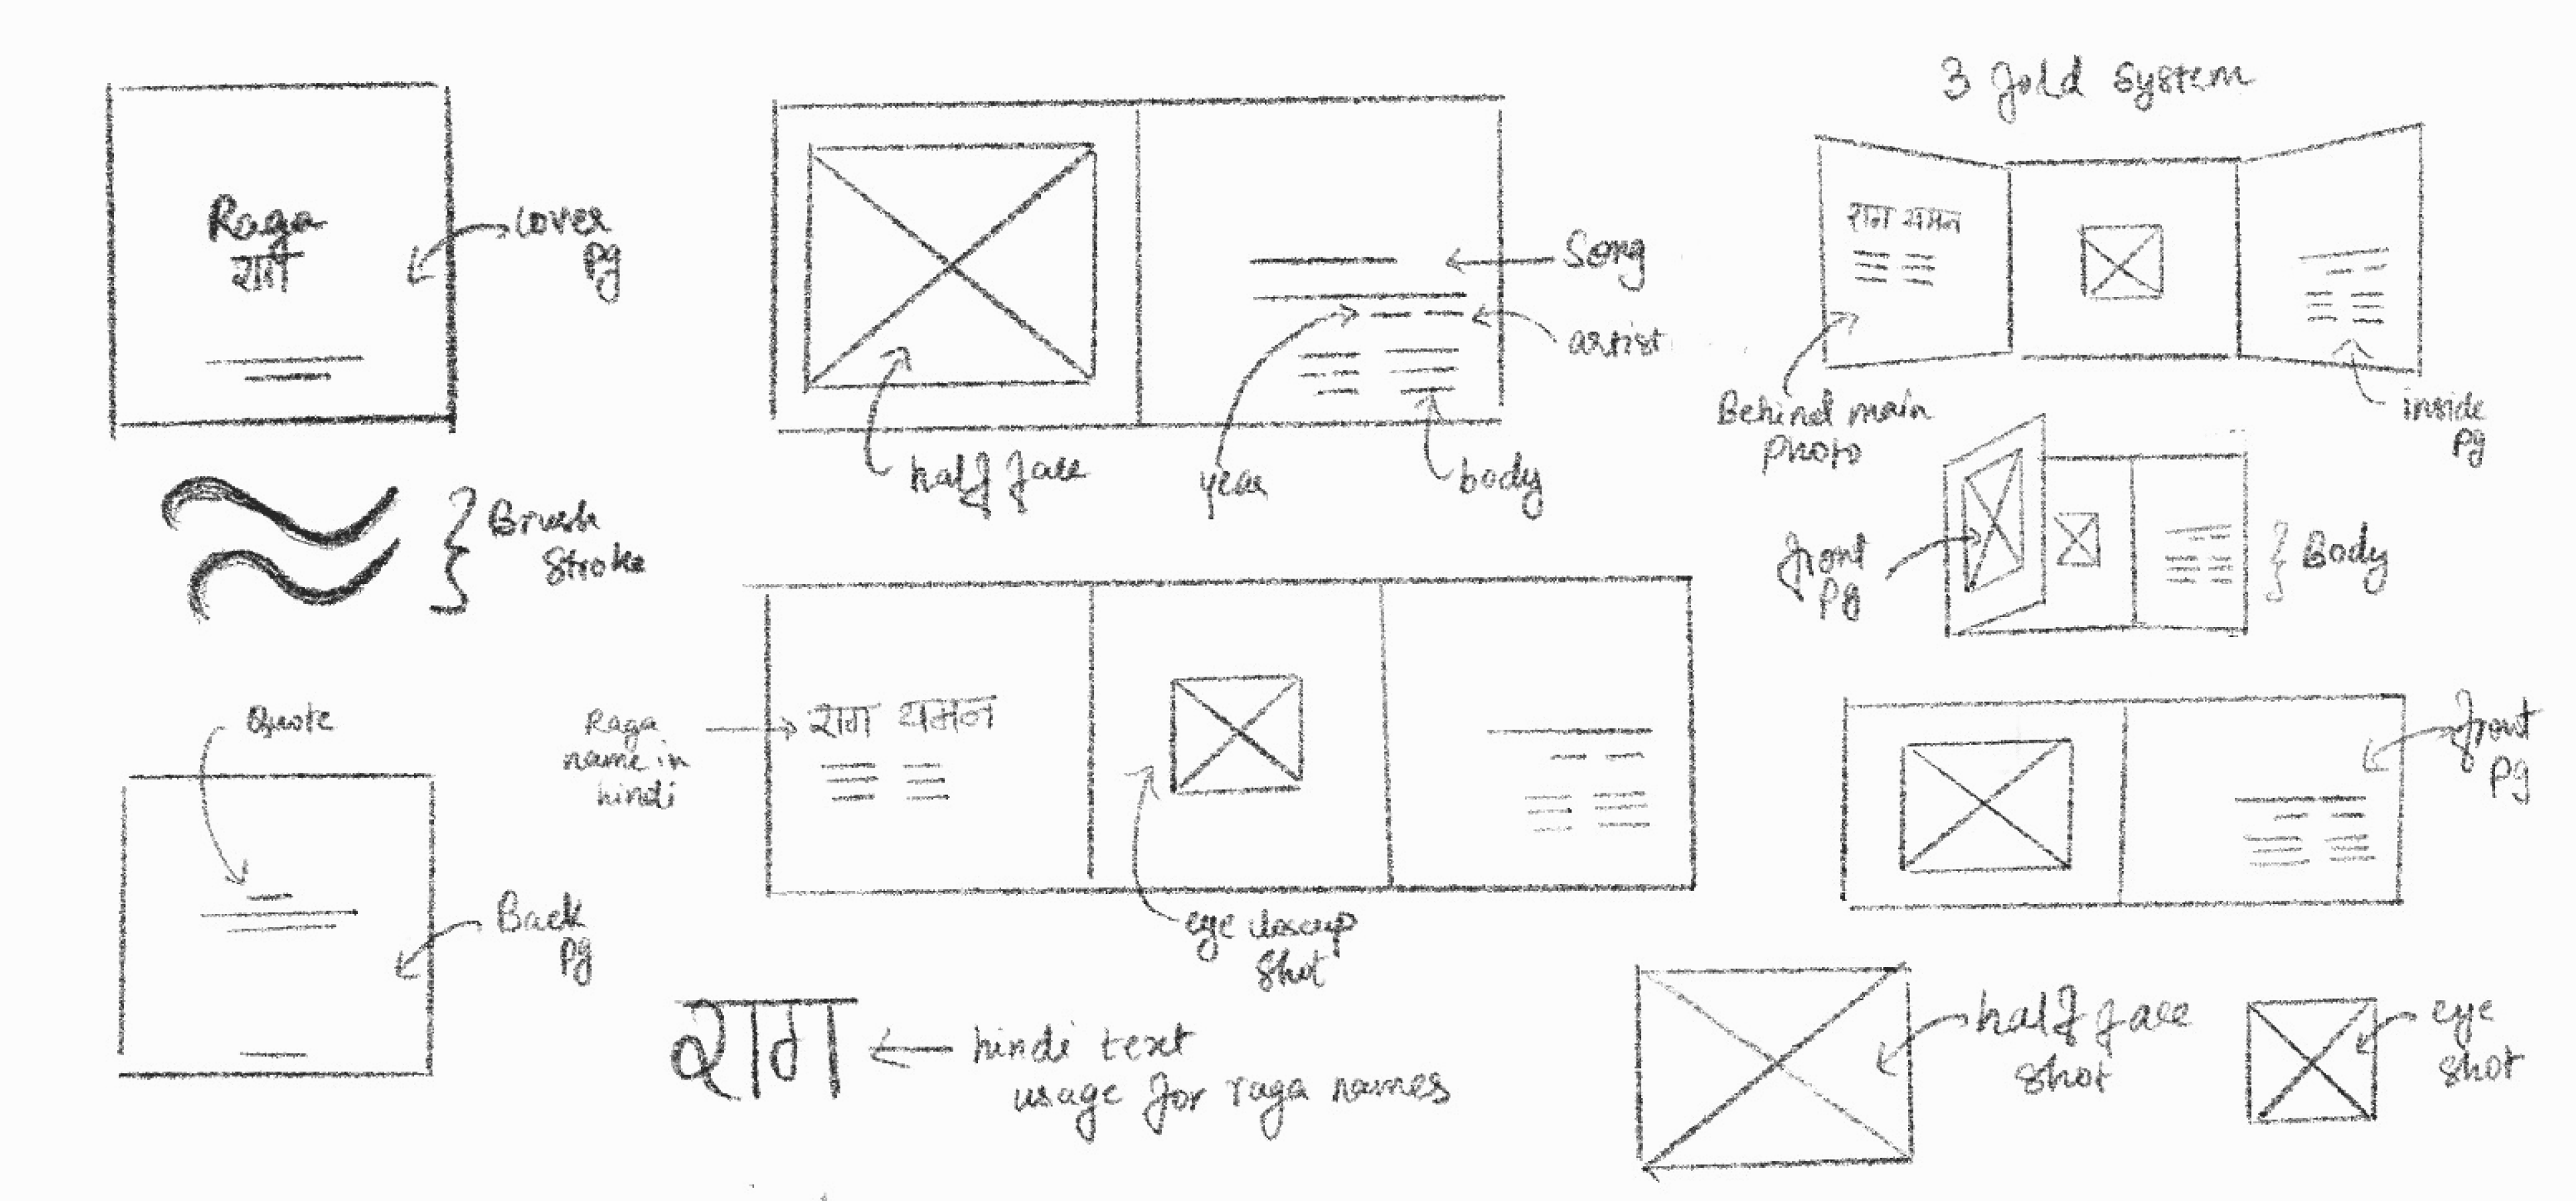 Raga
राग
cover
pg
Brush
Stroke
Quote
Back
pg
Song
artist
half face
year
body
Raga
name in
hindi
राग यमन
eye closeup
shot
राग
hindi text
usage for raga names
3 fold system
राग यमन
Behind main
photo
inside
pg
front
pg
Body
front
pg
half face
shot
eye
shot